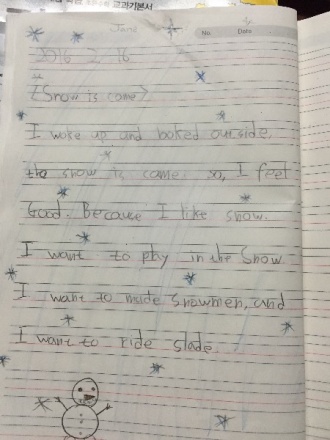 교과기본서
Jane
No.
Date
2016. 2. 16
<Snow is come>
I woke up and looked outside.
the snow is came. so, I feel
Good. Because I like snow.
I want to play in the Snow
I want to made snowmen, and
I want to ride slade.